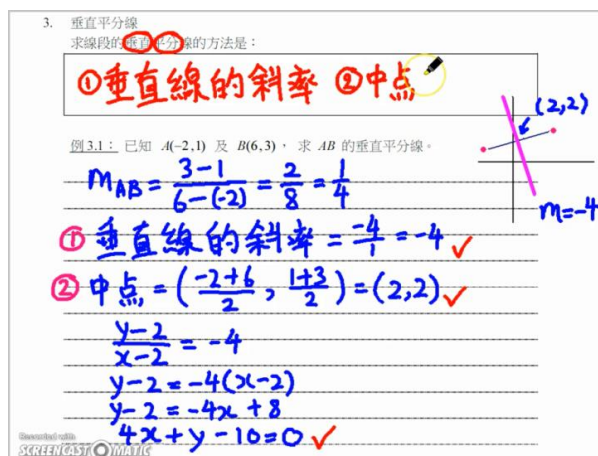 3. 垂直平分線
求線段的垂直平分線的方法是：
①垂直線的斜率 ②中点
(2,2)
例 3.1： 已知 A(−2,1) 及 B(6,3)， 求 AB 的垂直平分線。
mAB = 3−1/6−(−2) = 2/8 = 1/4
m=−4
① 垂直線的斜率 = −4/1 = −4 ✓
② 中点 = (−2+6/2, 1+3/2) = (2,2) ✓
y−2/x−2 = −4
y−2 = −4(x−2)
y−2 = −4x + 8
4x + y − 10 = 0 ✓
Recorded with
SCREENCAST O MATIC